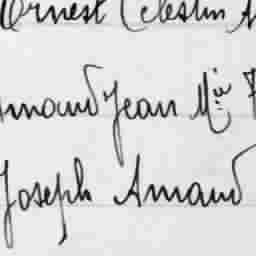 Ernest Celestin A
Amand Jean Mie
Joseph Amand